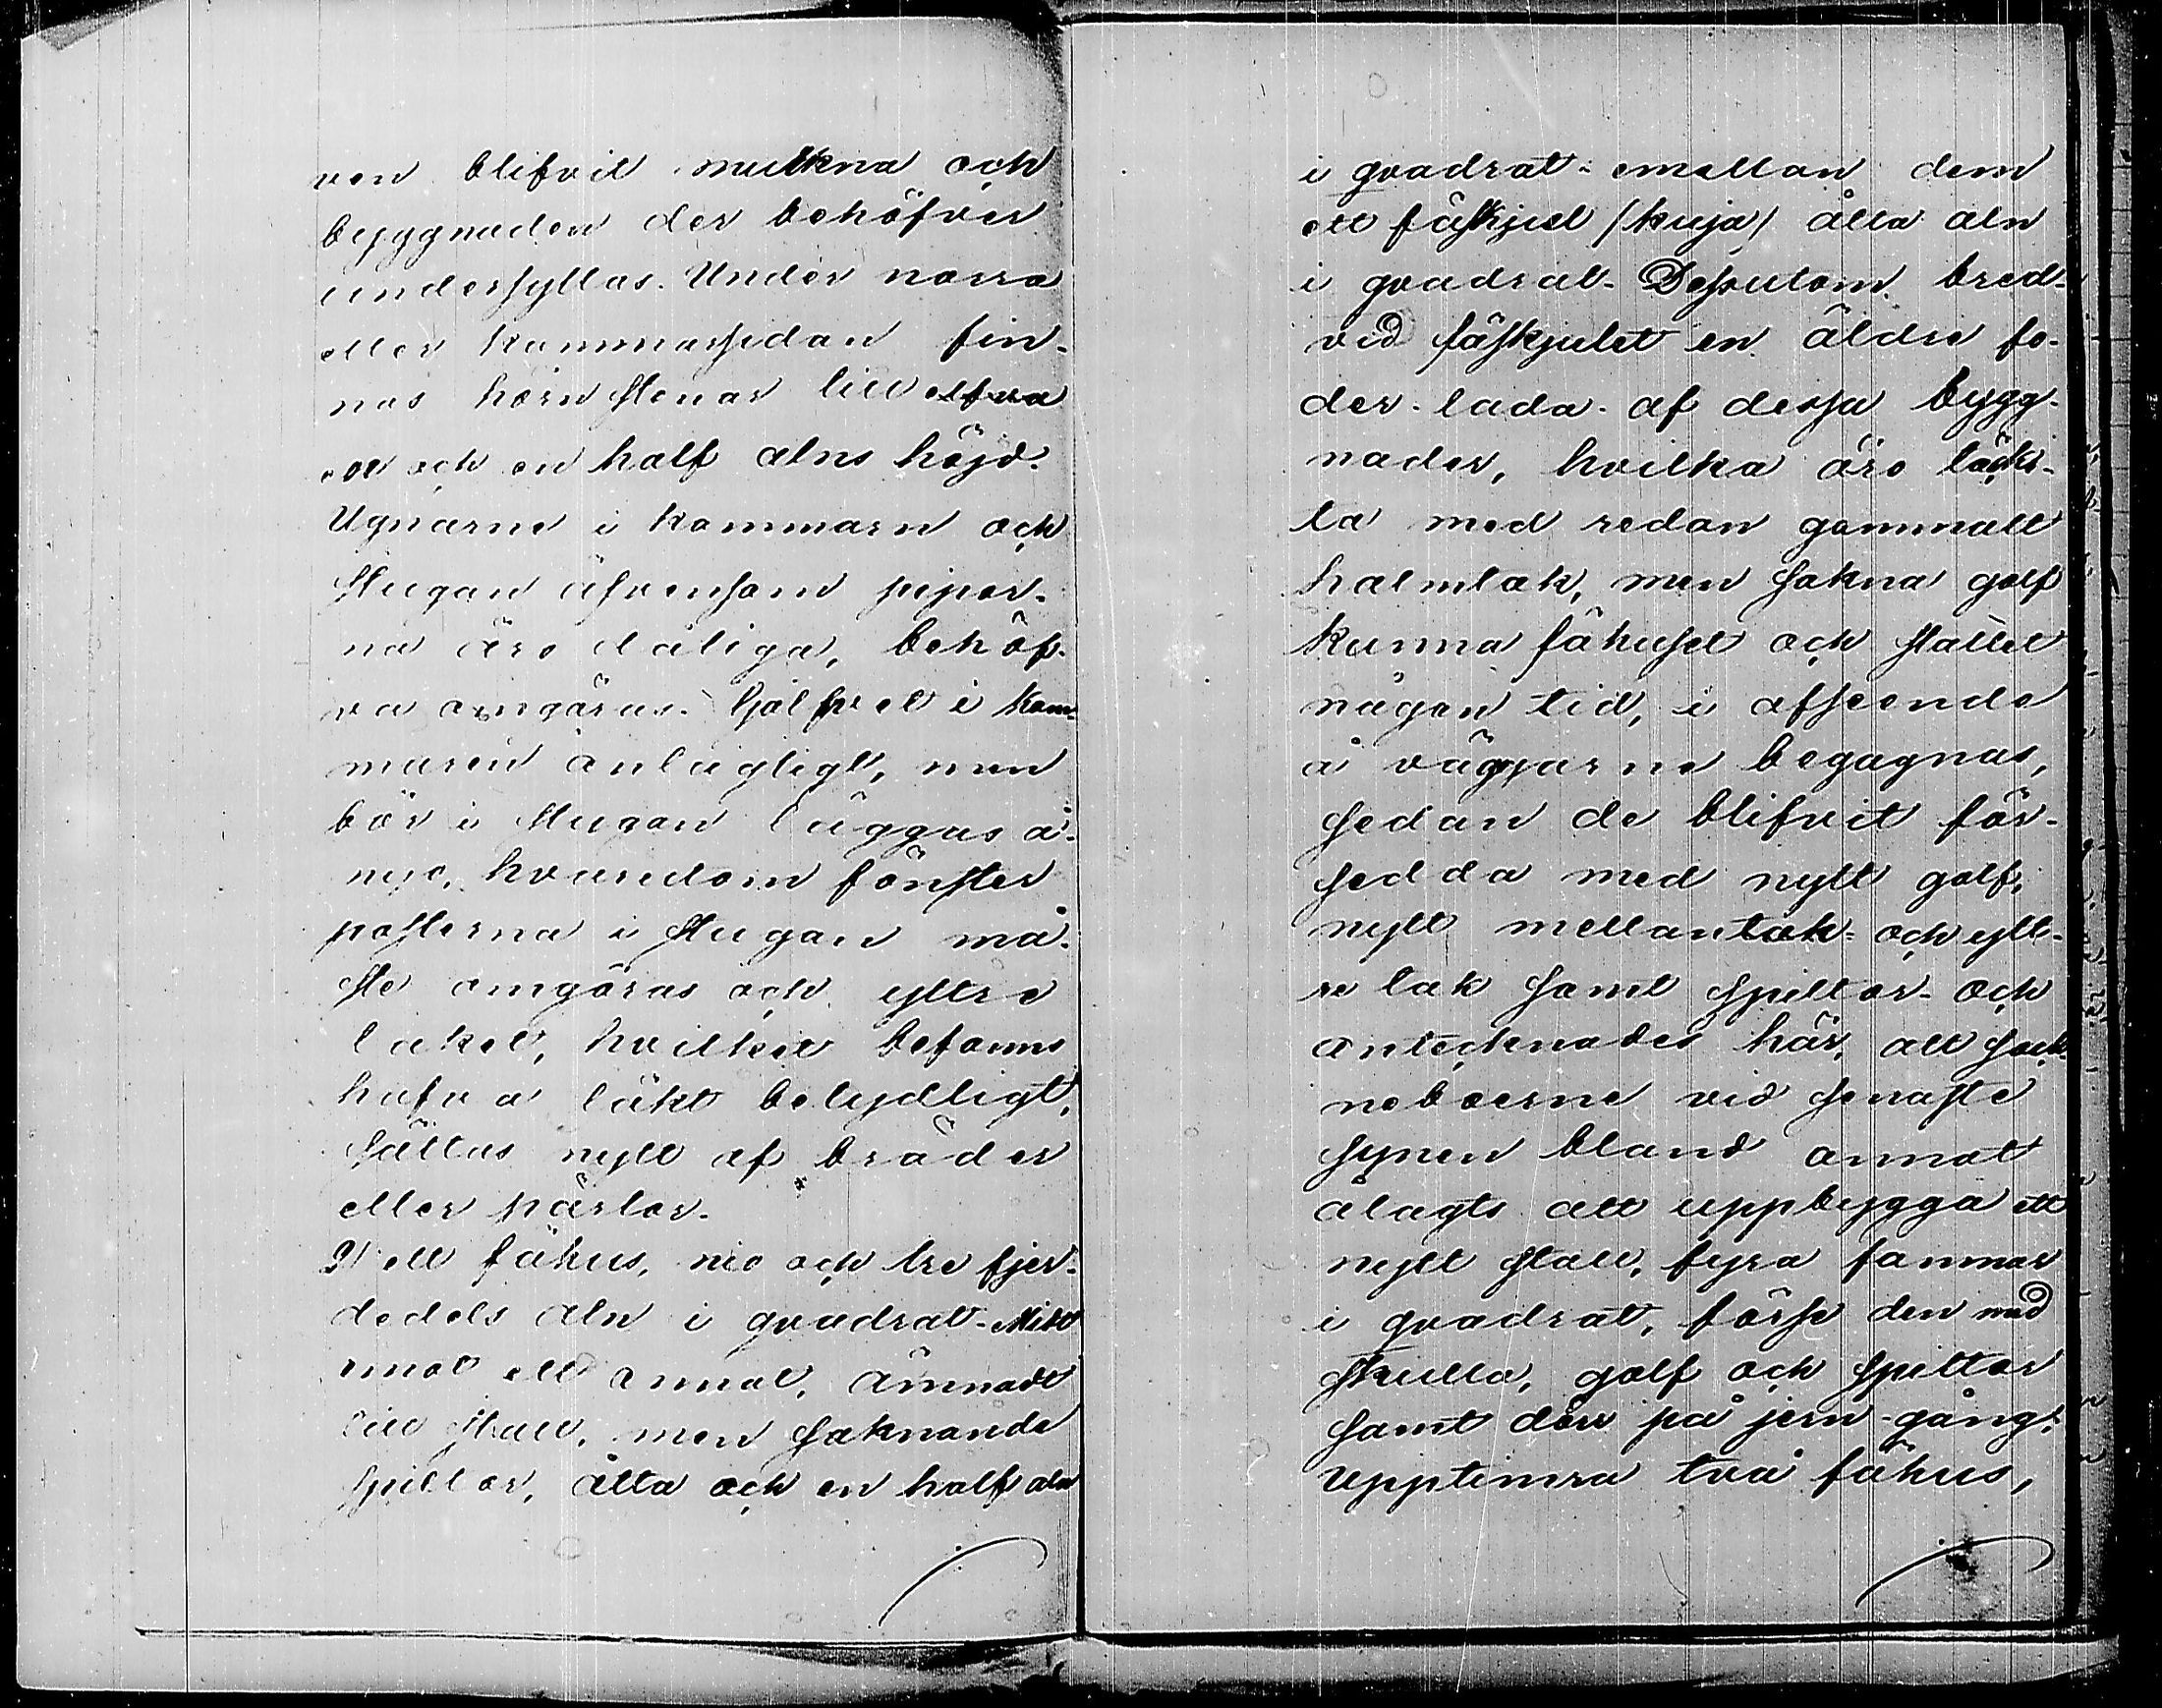 ven blifvit mulkna och
byggnaden der behöfver
undersyllas. Under norra
eller kammarsidan fin-
nas hörn stenar till
en och en half alns höjd.
Ugnarne i kammarn och
stugan äfvensom pipor-
na äro dåliga, behöf-
va omgöras. Golfvet i kam-
maren
bör i stugan läggas å-
nyo, hvarutom fönster
posterna i stugan må-
ste omgöras och yttre
taket, hvilket befanns
hafva läkt betydligt,
sättas nytt af bräder
eller pärtor.
2/ ett fähus, nio och tre fjer-
dedels aln i qvadrat. Midt
emot ett annat, ämnadt
till stall, men saknande
spiltor, åtta och en half aln
i qvadrat. emellan dem
ett fäskjul /kuja/ åtta aln
i qvadrat. Dessutom bred-
vid fäskjulet en äldre fo-
der-lada. af dessa bygg-
nader, hvilka äro täck-
ta med redan gammalt
halmtak, men sakna golf
kunna fähuset och stallet
någon tid, i afseende
å väggarne begagnas,
sedan de blifvit för-
sedda med nytt golf,
nytt mellantak och ytt-
re tak samt spiltor. och
antecknades här, att sock-
neboerne vid senaste
synen bland annat
ålagts att uppbygga ett
nytt stall, fyra famnar
i qvadrat, förse den med
skulla, golf och spiltor
samt dörr på jern-gång.
upptimra två fähus,